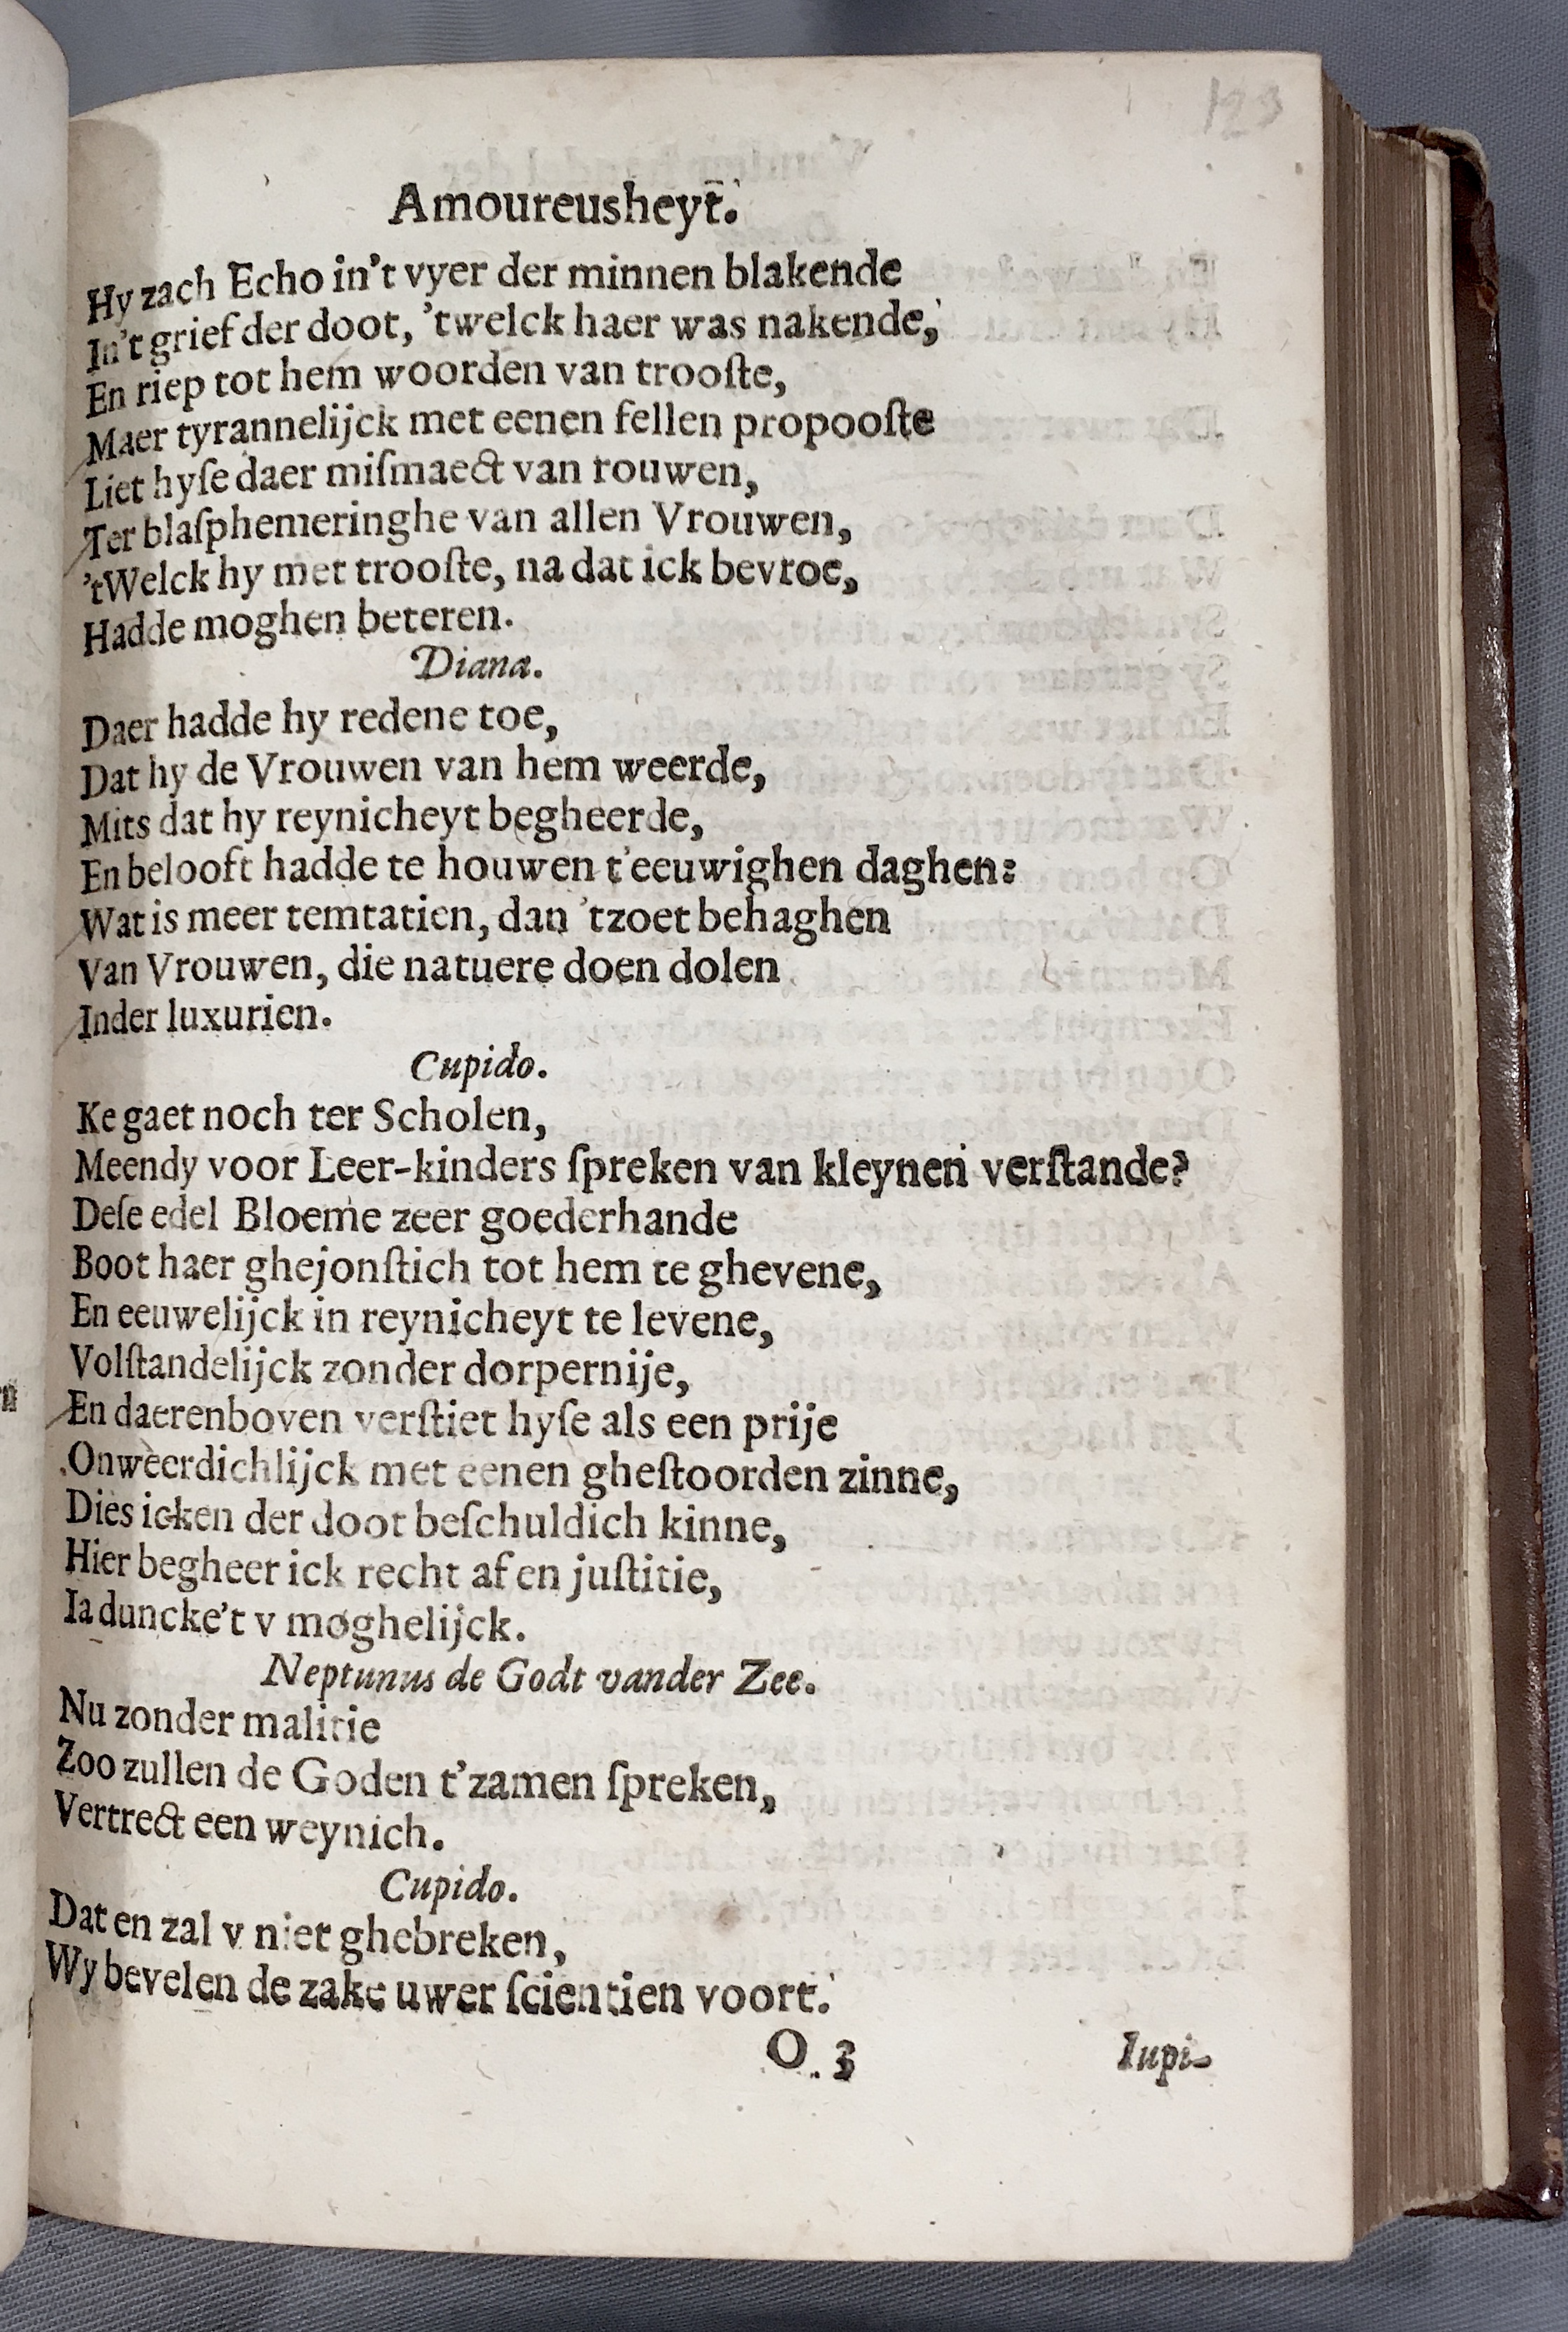 123
Amoureusheyt.
Hy zach Echo in't vyer der minnen blakende
In't grief der doot, 'twelck haer was nakende,
En riep tot hem woorden van trooſte,
Maer tyrannelijck met eenen fellen propooſte
Liet hyſe daer miſmaect van rouwen,
Ter blaſphemeringhe van allen Vrouwen,
'tWelck hy met trooſte, na dat ick bevroe,
Hadde moghen beteren.
Diana.
Daer hadde hy redene toe,
Dat hy de Vrouwen van hem weerde,
Mits dat hy reynicheyt begheerde,
En belooft hadde te houwen t'eeuwighen daghen:
Wat is meer temtatien, dan 'tzoet behaghen
Van Vrouwen, die natuere doen dolen
Inder luxurien.
Cupido.
Ke gaet noch ter Scholen,
Meendy voor Leer-kinders ſpreken van kleynen verſtande?
Deſe edel Bloeme zeer goederhande
Boot haer ghejonſtich tot hem te ghevene,
En eeuwelijck in reynicheyt te levene,
Volſtandelijck zonder dorpernije,
En daerenboven verſtiet hyſe als een prije
Onweerdichlijck met eenen gheſtoorden zinne,
Dies icken der doot beſchuldich kinne,
Hier begheer ick recht af en juſtitie,
Ia duncke't v moghelijck.
Neptunus de Godt vander Zee.
Nu zonder malitie
Zoo zullen de Goden t'zamen ſpreken,
Vertrect een weynich.
Cupido.
Dat en zal v niet ghebreken,
Wy bevelen de zake uwer ſcientien voort.
O 3 Iupi-